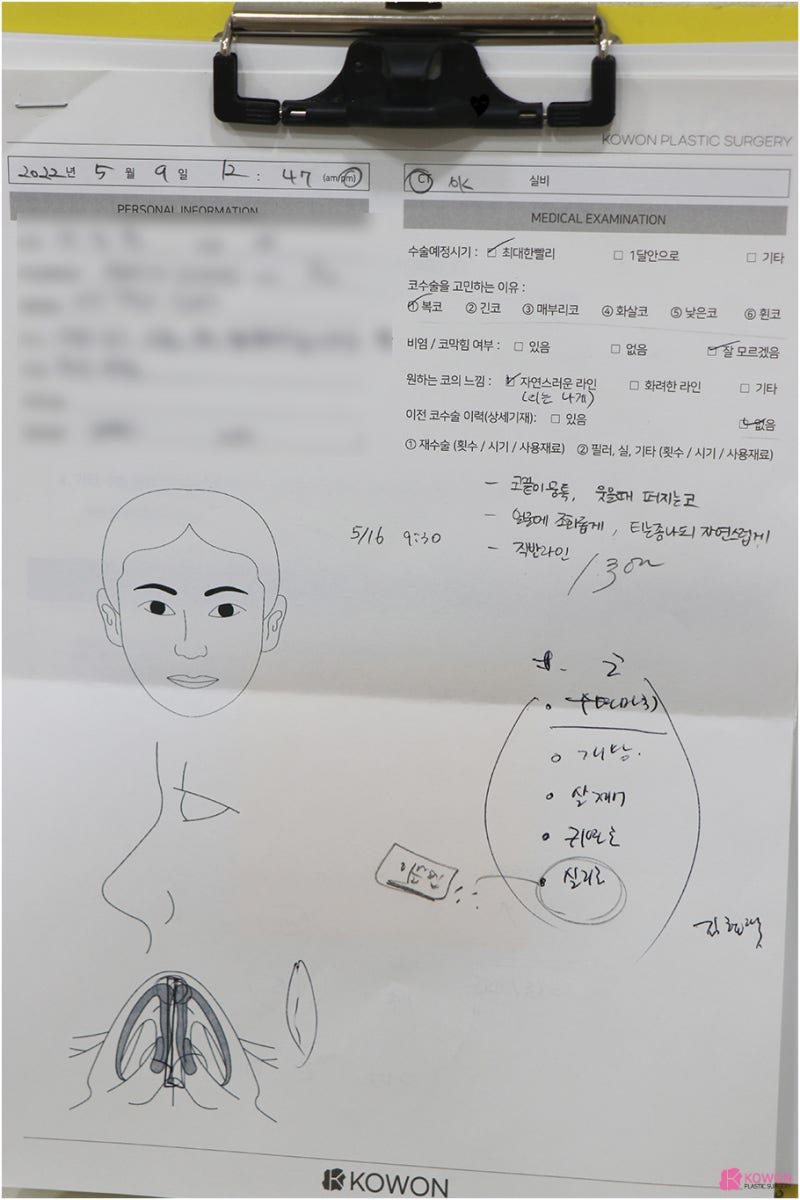 KOWON PLASTIC SURGERY
2022년 5월 9일 12 : 47 (am/pm)
CT OK 실비
PERSONAL INFORMATION
MEDICAL EXAMINATION
수술예정시기 : ☑ 최대한빨리 □ 1달안으로 □ 기타
코수술을 고민하는 이유 :
① 복코 ② 긴코 ③ 매부리코 ④ 화살코 ⑤ 낮은코 ⑥ 휜코
비염 / 코막힘 여부 : □ 있음 □ 없음 ☑ 잘 모르겠음
원하는 코의 느낌 : ☑ 자연스러운 라인 □ 화려한 라인 □ 기타
(티는 나게)
이전 코수술 이력(상세기재): □ 있음 ☑ 없음
① 재수술 (횟수 / 시기 / 사용재료) ② 필러, 실, 기타 (횟수 / 시기 / 사용재료)
- 코끝이 뭉툭, 웃을때 퍼지는코
5/16 9:30
- 얼굴에 조화롭게, 티는좀나되 자연스럽게
- 직반라인
코
수면마취
개방.
귀연골
실리콘
KOWON
KOWON
PLASTIC SURGERY